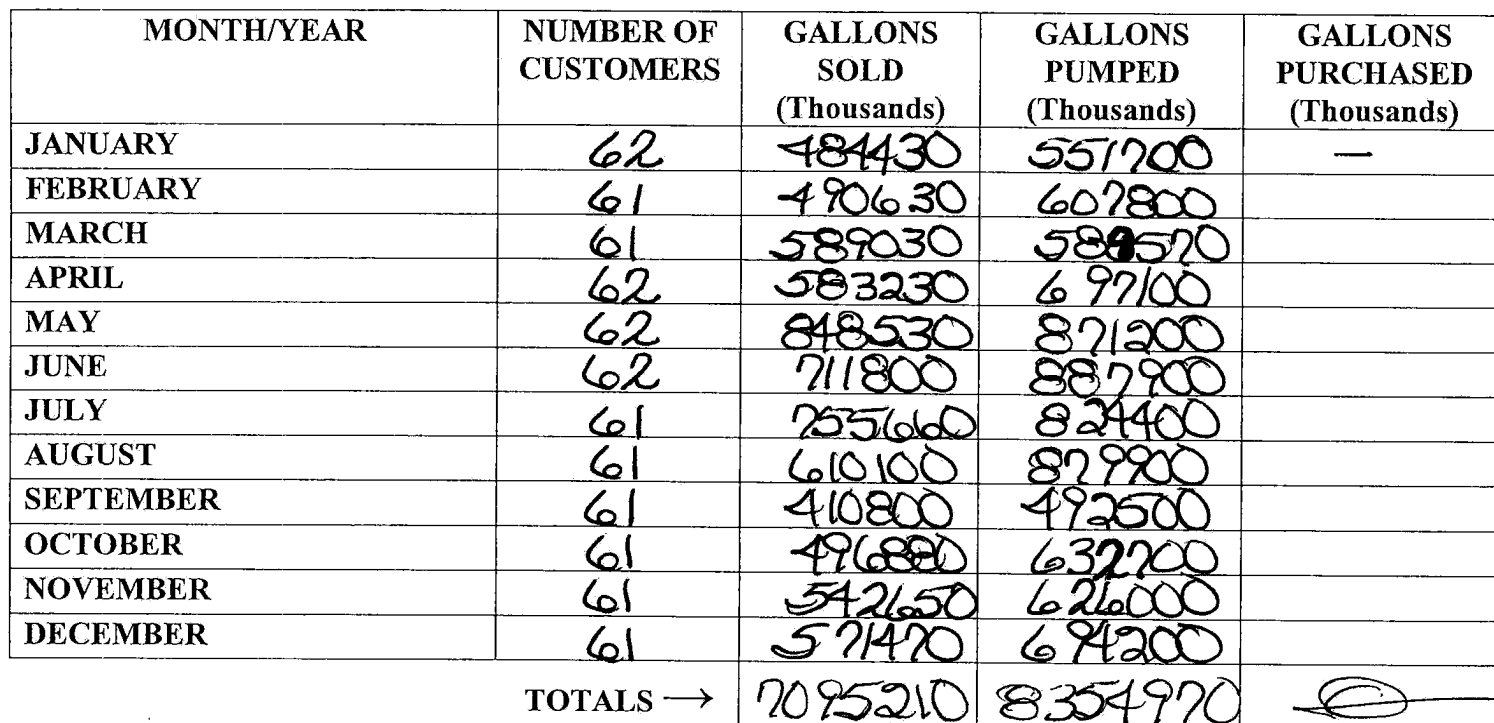 MONTH/YEAR NUMBER OF CUSTOMERS GALLONS SOLD (Thousands) GALLONS PUMPED (Thousands) GALLONS PURCHASED (Thousands)
JANUARY 62 484430 551700 —
FEBRUARY 61 490630 607800
MARCH 61 589030 589570
APRIL 62 583230 697100
MAY 62 848530 871200
JUNE 62 711800 887900
JULY 61 755660 824400
AUGUST 61 610100 879900
SEPTEMBER 61 410800 492500
OCTOBER 61 496880 632700
NOVEMBER 61 542650 626000
DECEMBER 61 571470 694200
TOTALS → 7095210 8354970